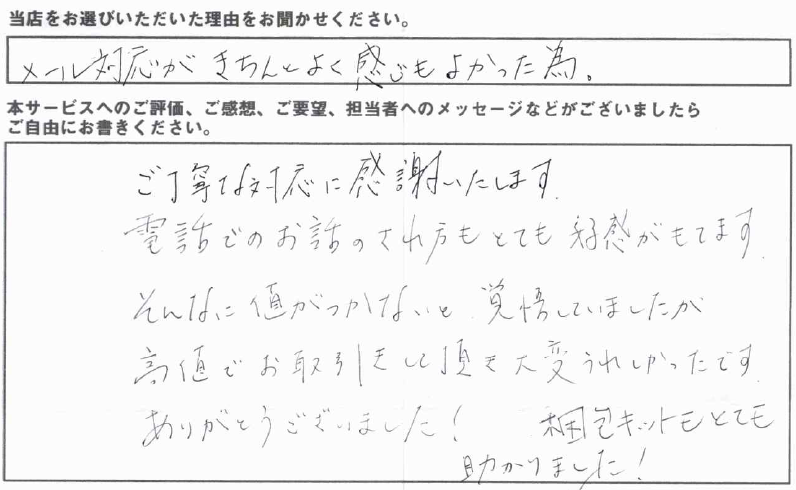 当店をお選びいただいた理由をお聞かせください。
メール対応がきちんとよく感じもよかった為。
本サービスへのご評価、ご感想、ご要望、担当者へのメッセージなどがございましたら
ご自由にお書きください。
ご丁寧な対応に感謝いたします
電話でのお話のされ方もとても好感がもてます
そんなに値がつかないと覚悟していましたが
高値でお取引をして頂き大変うれしかったです
ありがとうございました! 梱包キットもとても
助かりました!